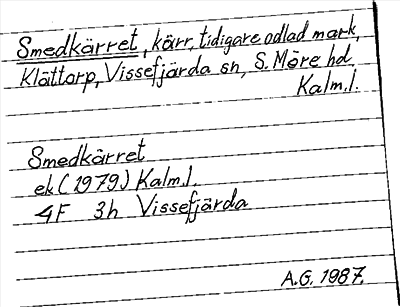 Smedkärret, kärr, tidigare odlad mark,
Klättorp, Vissefjärda sn, S. Möre hd
Kalm.l.
Smedkärret
ek (1979) Kalm.l.
4F 3h Vissefjärda
A.G. 1987.